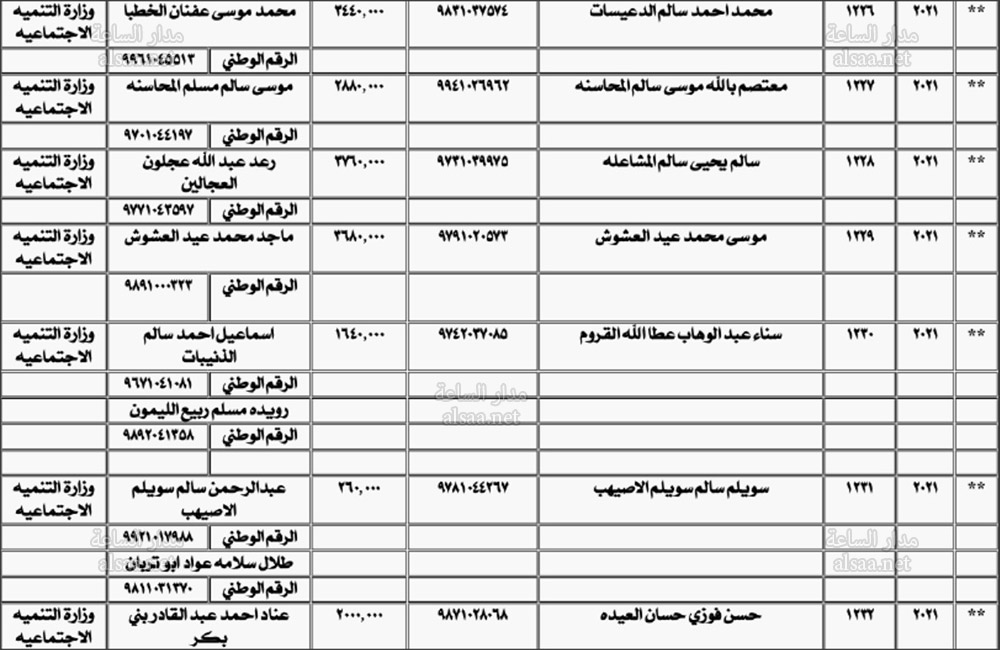 ** ٢٠٢١ ١٢٢٦ محمد احمد سالم الدعيسات ٩٨٣١٠٣٧٥٧٤ ٣٤٤٠,٠٠٠ محمد موسى عفنان الخطبا وزارة التنميه
الاجتماعيه
الرقم الوطني ٩٩٦١٠٤٥٥١٣
** ٢٠٢١ ١٢٢٧ معتصم بالله موسى سالم المحاسنه ٩٩٤١٠٣٦٩٦٢ ٢٨٨٠,٠٠٠ موسى سالم مسلم المحاسنه وزارة التنميه
الاجتماعيه
الرقم الوطني ٩٧٠١٠٤٤١٩٧
** ٢٠٢١ ١٢٢٨ سالم يحيى سالم المشاعله ٩٧٣١٠٣٩٩٧٥ ٣٧٦٠,٠٠٠ رعد عبد الله عجلون وزارة التنميه
العجالين الاجتماعيه
الرقم الوطني ٩٧٧١٠٤٣٥٩٧
** ٢٠٢١ ١٢٢٩ موسى محمد عيد العشوش ٩٧٩١٠٢٠٥٧٣ ٣٦٨٠,٠٠٠ ماجد محمد عيد العشوش وزارة التنميه
الاجتماعيه
الرقم الوطني ٩٨٩١٠٠٠٣٢٣
** ٢٠٢١ ١٢٣٠ سناء عبد الوهاب عطا الله القروم ٩٧٤٢٠٣٧٠٨٥ ١٦٤٠,٠٠٠ اسماعيل احمد سالم وزارة التنميه
الذنيبات الاجتماعيه
الرقم الوطني ٩٦٧١٠٤١٠٨١
رويده مسلم ربيع الليمون
الرقم الوطني ٩٨٩٢٠٤١٣٥٨
** ٢٠٢١ ١٢٣١ سويلم سالم سويلم الاصيهب ٩٧٨١٠٤٤٢٦٧ ٢٦٠,٠٠٠ عبدالرحمن سالم سويلم وزارة التنميه
الاصيهب الاجتماعيه
الرقم الوطني ٩٩٢١٠١٧٩٨٨
طلال سلامه عواد ابو تربان
الرقم الوطني ٩٨١١٠٣١٣٧٠
** ٢٠٢١ ١٢٣٢ حسن فوزي حسان العيده ٩٨٧١٠٢٨٠٦٨ ٢٠٠٠,٠٠٠ عناد احمد عبد القادر بني وزارة التنميه
بكر الاجتماعيه
مدار الساعة
alsaa.net
مدار الساعة
alsaa.net
مدار الساعة
alsaa.net
مدار الساعة
alsaa.net
مدار الساعة
alsaa.net